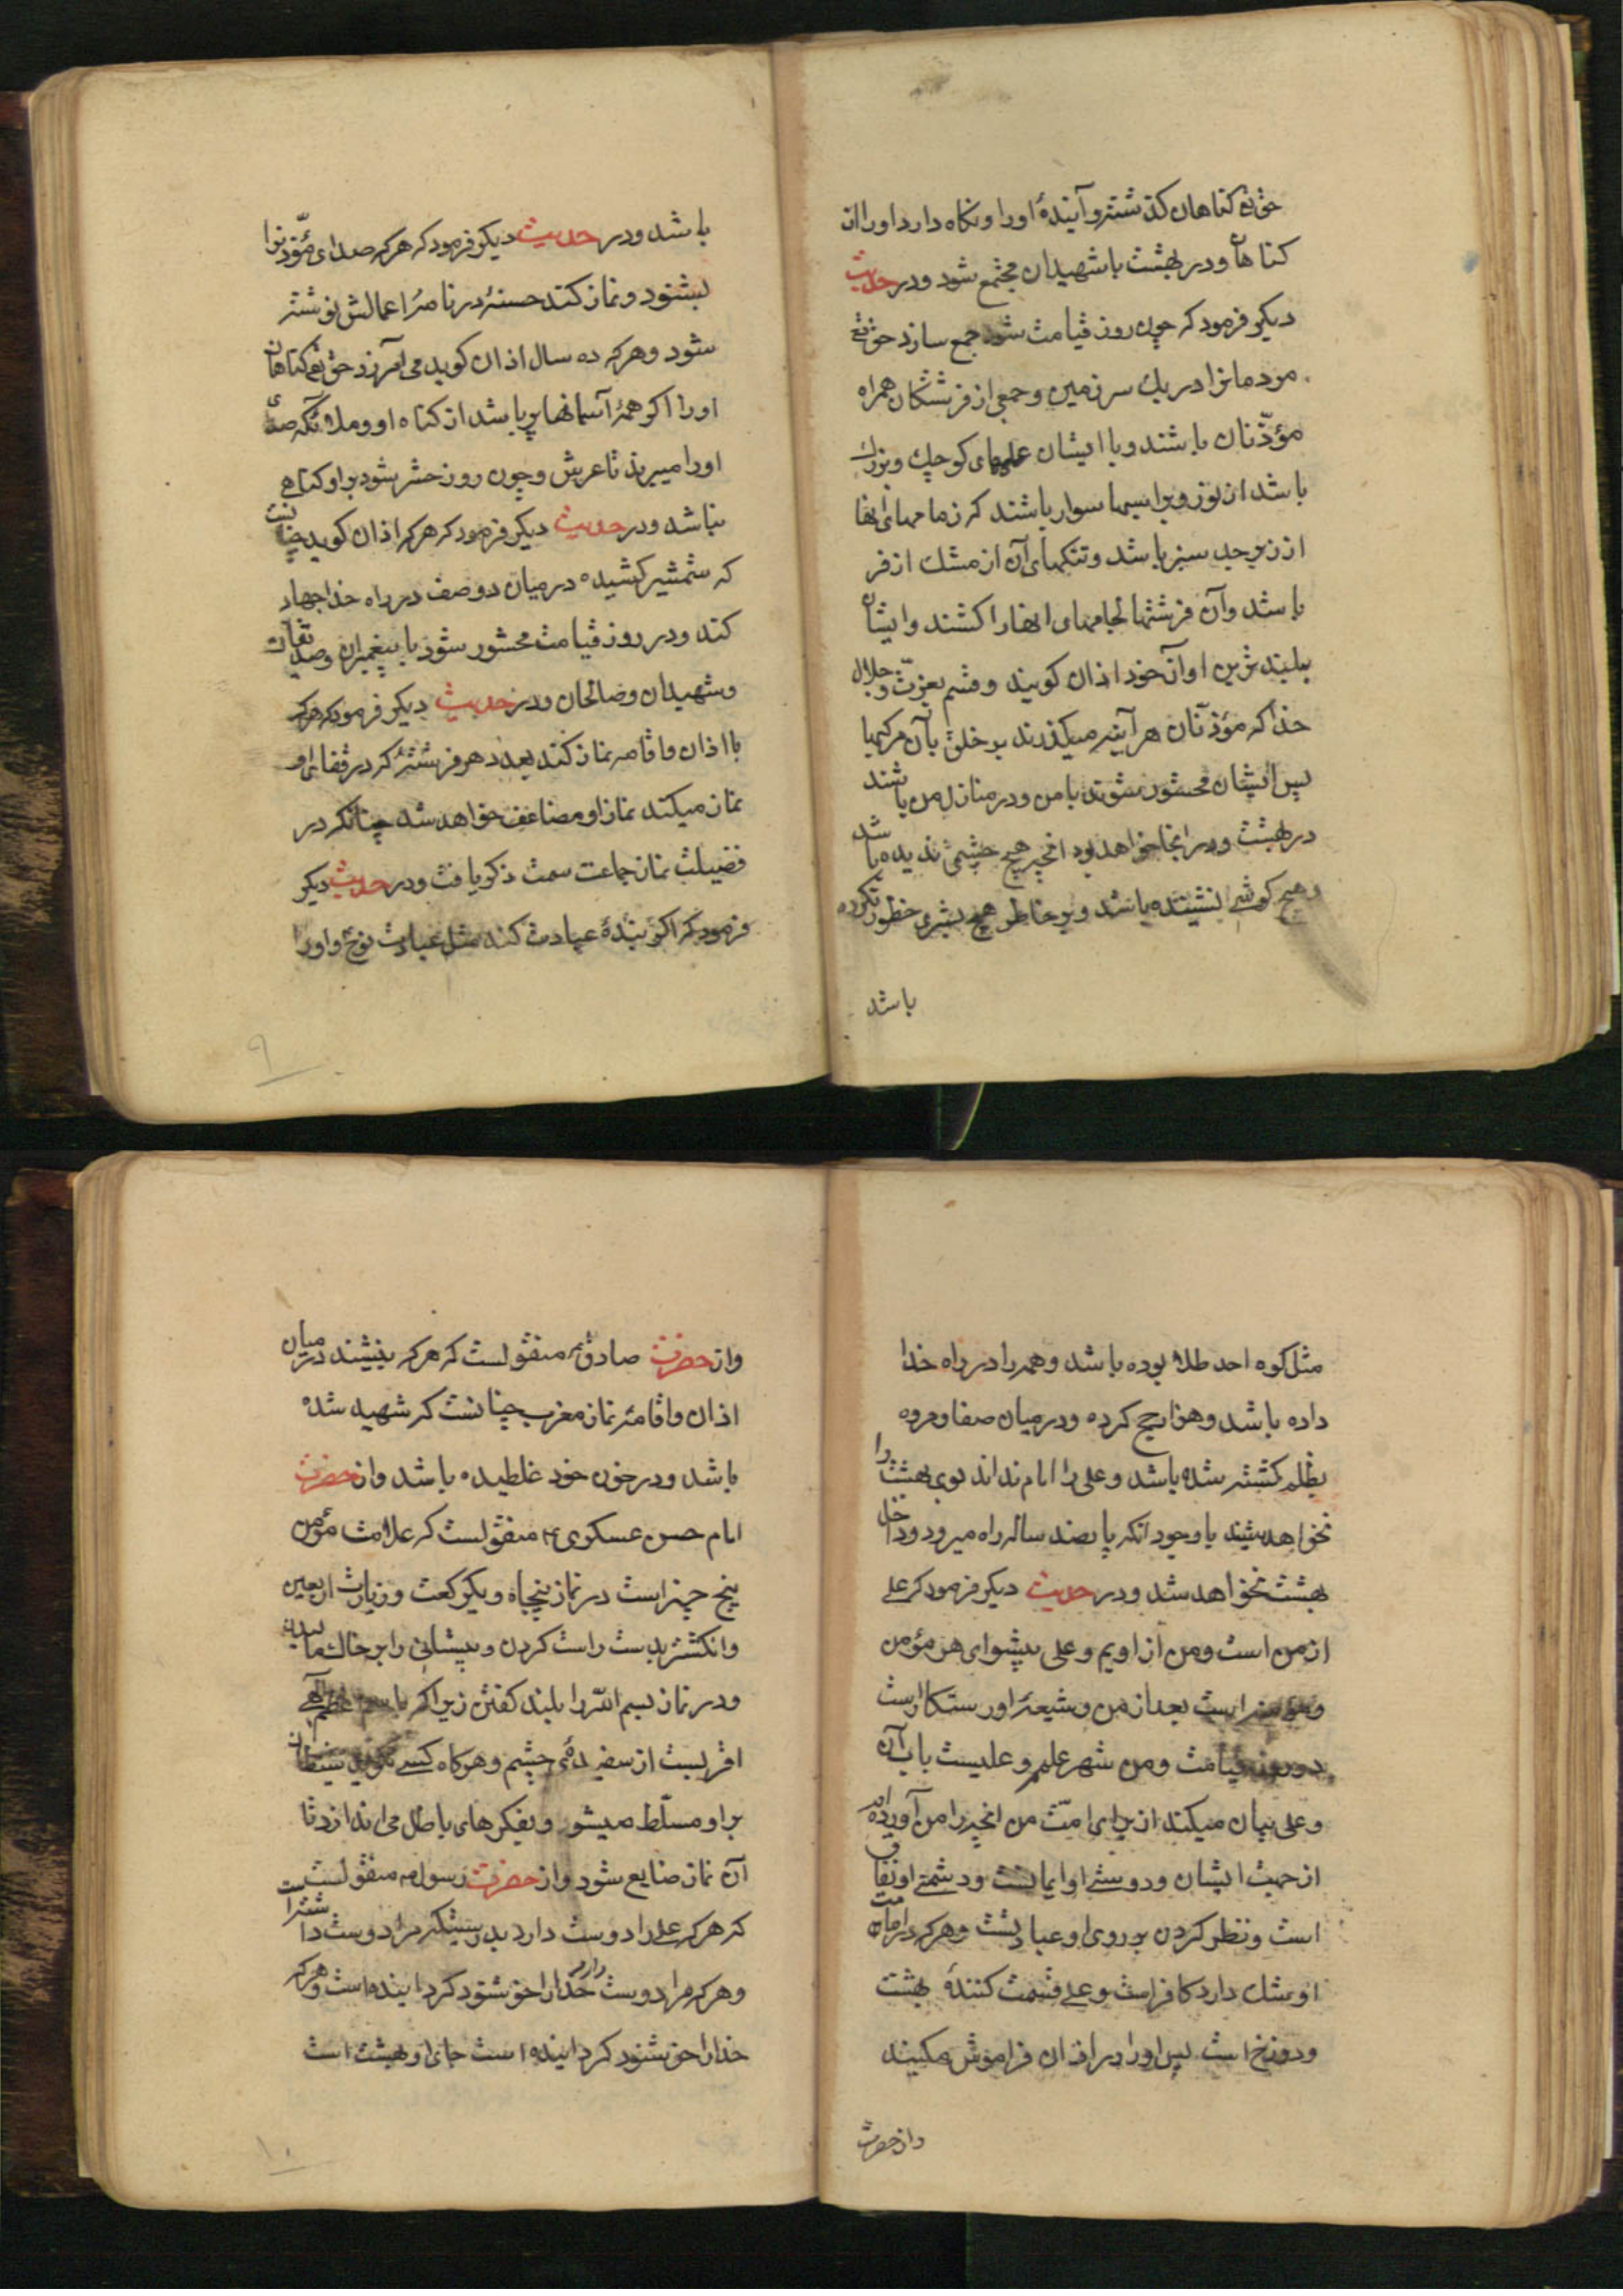 حق تع کناهان کذشته و آیندهٔ اورا و نکاه دارد اورا از
کناهان و در بهشت با شهیدان مجتمع شود و در حدیث
دیکر فرمود که چون روز قیامت شود جمع سازد حق تع
مردمانرا در یك سر زمین و جمعی از فرشتکان همراه
مؤذّنان باشند و با ایشان علمهای کوچك و بزرك
باشد از نور و بر اسبها سوار باشند که زمامهای انها
از زبرجد سبز باشد و تنکهای آن از مشك ازفر
باشد و آن فرشتها لجامهای انها را کشند و ایشان
ببلند ترین اواز خود اذان کویند و قسم بعزّت و جلال
خدا که مؤذنان هر آینه میکذرند بر خلق بآن مرکبها
پس ایشان محشور شوند با من و در منازل من باشند
در بهشت و در انجا خواهد بود انچه هیچ چشمی ندیده باشد
و هیچ کوشی نشنیده باشد و بر خاطر هیچ بشری خطور نکرده
باشد
باشد و در حدیث دیکر فرمود که هر که صدای مؤذّنرا
بشنود و نماز کند حسنهٔ در نامهٔ اعمالش نوشته
شود و هر که ده سال اذان کوید می آمرزد حق تع کناهان
اورا اکر همهٔ آسمانها پر باشد از کناه او و ملائکه صدای
اورا میبرند تا عرش و چون روز حشر شود بر او کناهی
نباشد و در حدیث دیکر فرمود که هر که اذان کوید چنانست
که شمشیر کشیده در میان دو صف در راه خدا جهاد
کند و در روز قیامت محشور شود با پیغمبران و صدیقان
و شهیدان و صالحان و در حدیث دیکر فرمود که هر که
با اذان و اقامه نماز کند بعدد هر فرشتهٔ که در قفای او
نماز میکند نماز او مضاعف خواهد شد چنانکه در
فضیلت نماز جماعت سمت ذکر یافت و در حدیث دیکر
فرمود که اکر بندهٔ عبادت کند مثل عبادت نوح و اورا
۹
مثل کوه احد طلا بوده باشد و همه را در راه خدا
داده باشد و هزار حج کرده و در میان صفا و مروه
بظلم کشته شده باشد و علی را امام نداند بوی بهشت را
نخواهد شنید با وجود انکه پانصد ساله راه میرود و داخل
بهشت نخواهد شد و در حدیث دیکر فرمود که علی
از من است و من از اویم و علی پیشوای هر مؤمن
و مؤمنه است بعد از من و شیعهٔ او رستکار است
در روز قیامت و من شهر علمم و علیست باب آن
و علی بیان میکند از برای امّت من انچه را من آورده ام
از جهت ایشان و دوستی او ایمانست و دشمنی او نفاق
است و نظر کردن بر روی او عبادتست و هر که در امامت
او شك دارد کافر است و علی قسمت کنندهٔ بهشت
و دوزخ است پس اورا در اذان فراموش مکنید
و از حضرت
و از حضرت صادق ع منقولست که هر که بنشیند در میان
اذان و اقامهٔ نماز مغرب چنانست که شهید شده
باشد و در خون خود غلطیده باشد و از حضرت
امام حسن عسکری ع منقولست که علامت مؤمن
پنج چیز است در نماز پنجاه و یکرکعت و زیارت اربعین
و انکشتر بدست راست کردن و پیشانی را بر خاك مالیدن
و در نماز بسم الله را بلند کفتن زیرا که باسم اعظم الهی
اقربست از سفیدهٔ چشم و هر کاه کسی نکوید شیطان
بر او مسلّط میشود و بفکرهای باطل می اندازد تا
آن نماز ضایع شود و از حضرت رسول ص منقولست
که هر که علی را دوست دارد بدرستیکه مرا دوست داشته است
و هر که مرا دوست دارد خدا را خوشنود کردانیده است و هر که
خدا را خوشنود کردانیده است جای او بهشت است
۱۰